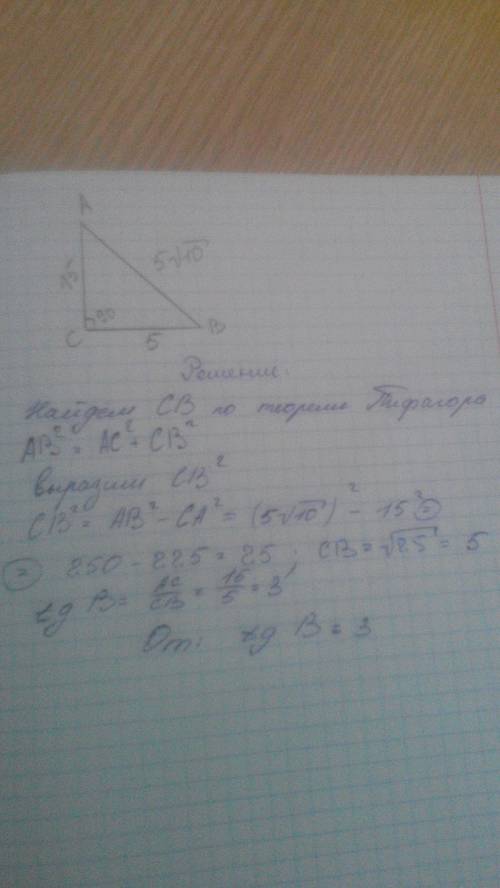 A
15
5√10
90
C
5
B
Решение:
Найдём CB по теореме Пифагора
AB² = AC² + CB²
выразим CB²
CB² = AB² - CA² = (5√10)² - 15² =
= 250 - 225 = 25 ; CB = √25 = 5
tg B = AC/CB = 15/5 = 3
От: tg B = 3